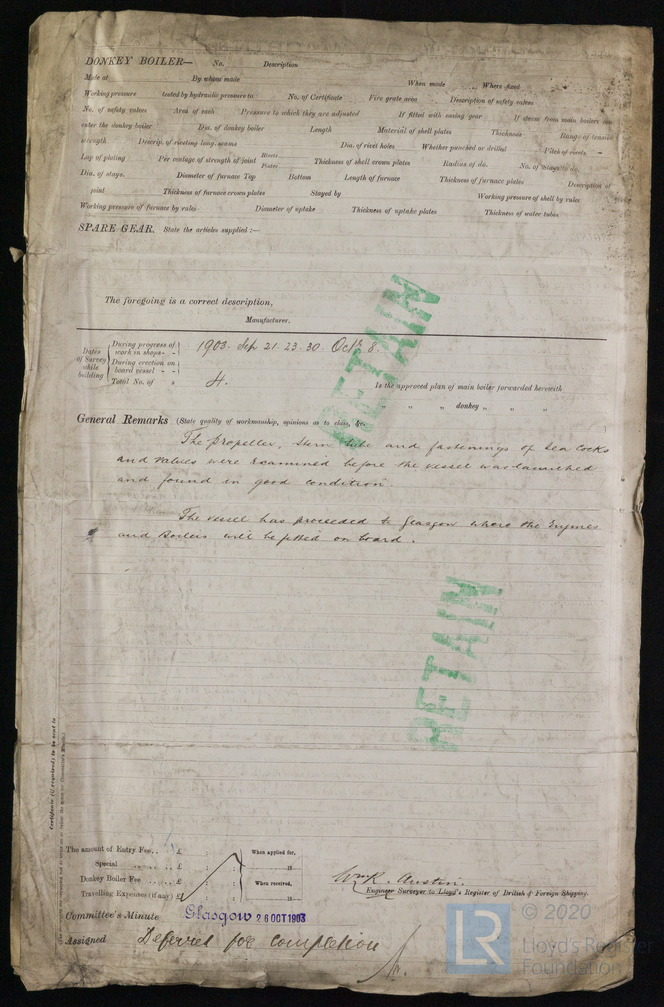 DONKEY BOILER— No. Description
Made at By whom made When made Where fixed
Working pressure tested by hydraulic pressure to No. of Certificate Fire grate area Description of safety valves
No. of safety valves Area of each Pressure to which they are adjusted If fitted with easing gear If steam from main boilers can
enter the donkey boiler Dia. of donkey boiler Length Material of shell plates Thickness Range of tensile
strength Descrip. of riveting long. seams Dia. of rivet holes Whether punched or drilled Pitch of rivets
Lap of plating Per centage of strength of joint Rivets Plates Thickness of shell crown plates Radius of do. No. of Stays to do.
Dia. of stays. Diameter of furnace Top Bottom Length of furnace Thickness of furnace plates Description of
joint Thickness of furnace crown plates Stayed by Working pressure of shell by rules
Working pressure of furnace by rules Diameter of uptake Thickness of uptake plates Thickness of water tubes
SPARE GEAR. State the articles supplied :—
The foregoing is a correct description,
Manufacturer.
Dates of Survey while building
During progress of work in shops - - 1903. Sep 21. 23. 30. Oct 8.
During erection on board vessel - -
Total No. of 4. Is the approved plan of main boiler forwarded herewith
" " " donkey " " "
General Remarks (State quality of workmanship, opinions as to class, &c.
The propeller, stern tube and fastenings of sea cocks
and valves were examined before the vessel was launched
and found in good condition.
The vessel has proceeded to Glasgow where the Engines
and Boilers will be fitted on board.
RETAIN
RETAIN
Certificate (if required) to be sent to
The amount of Entry Fee. . £ : : When applied for,
Special £ : : 19
Donkey Boiler Fee £ : : When received,
Travelling Expenses (if any) £ : : 19
Wm R. Austin.
Engineer Surveyor to Lloyd's Register of British & Foreign Shipping.
Committee's Minute Glasgow 26 OCT 1903
Assigned Deferred for completion
LR © 2020
Lloyd's Register
Foundation